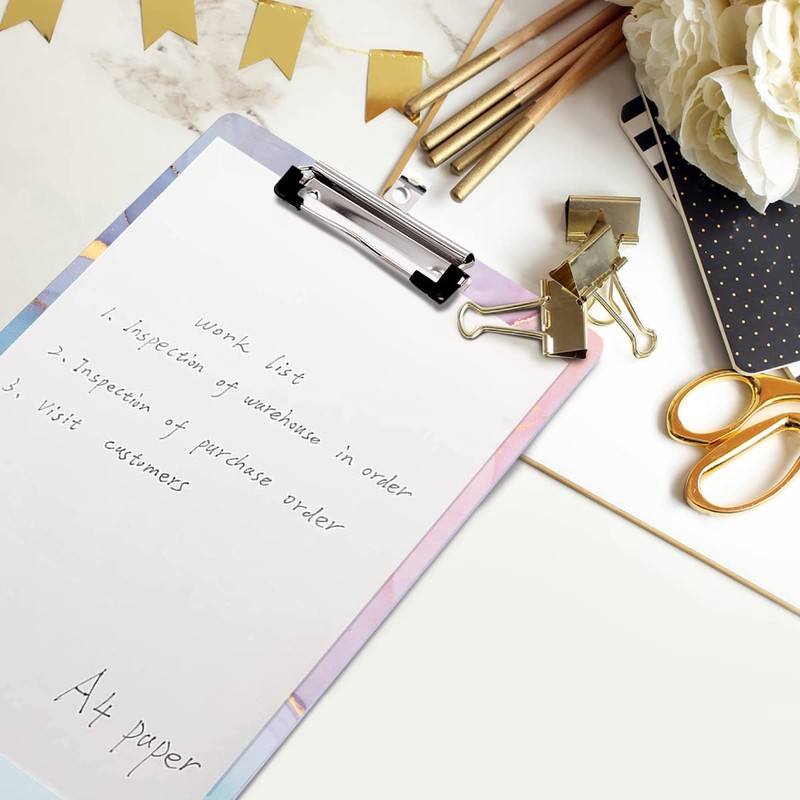 work list
1. Inspection of warehouse in order
2. Inspection of purchase order
3. Visit customers
A4 paper